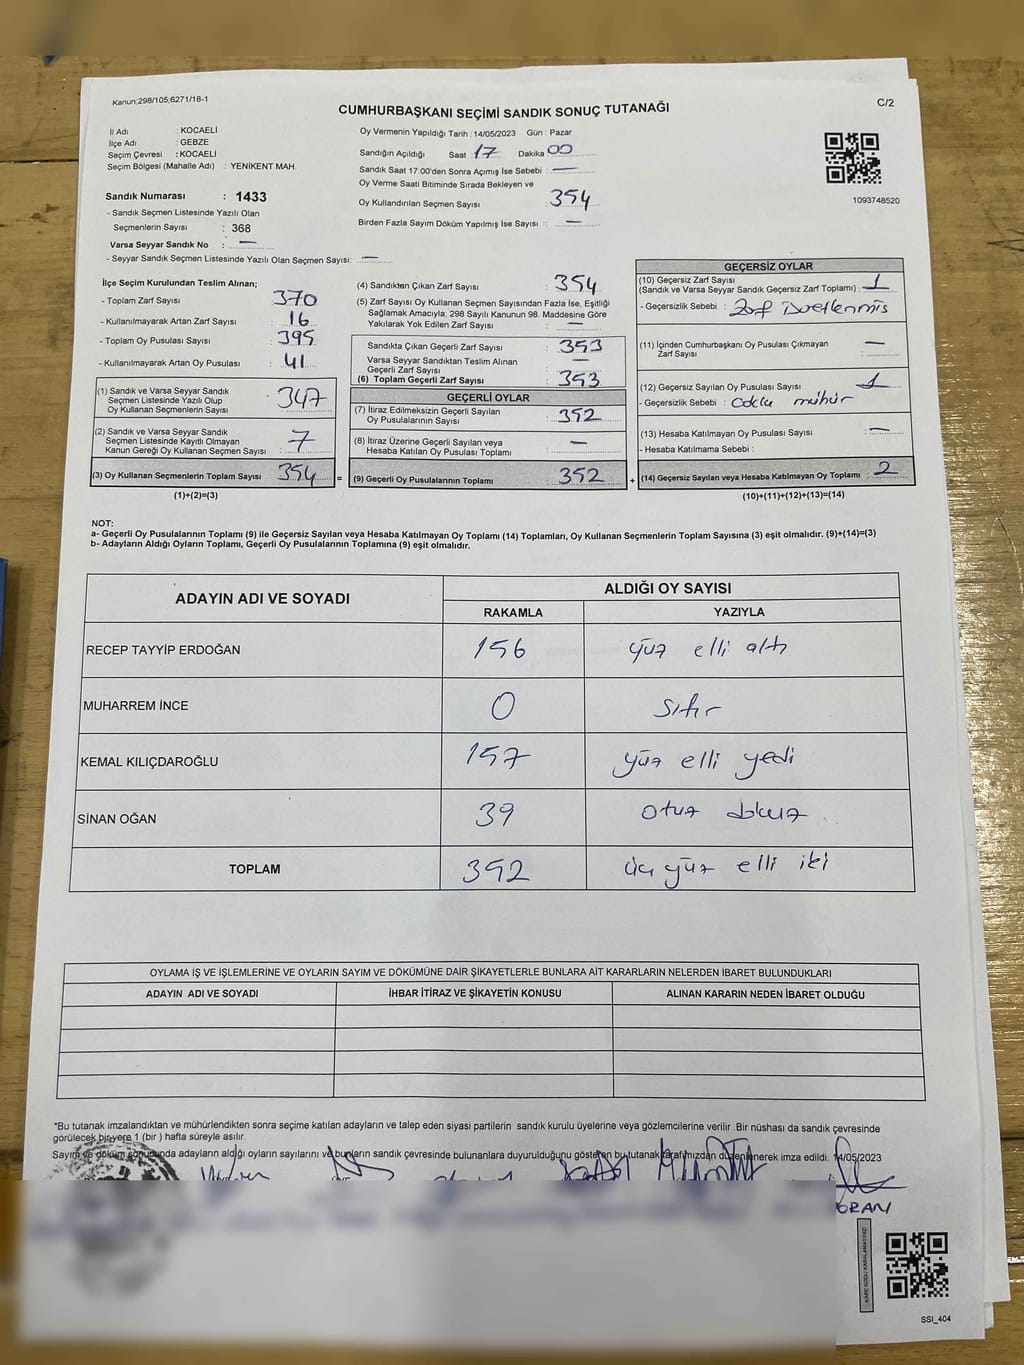 Kanun;298/105;6271/18-1
CUMHURBAŞKANI SEÇİMİ SANDIK SONUÇ TUTANAĞI
C/2
İl Adı : KOCAELİ
İlçe Adı : GEBZE
Seçim Çevresi : KOCAELİ
Seçim Bölgesi (Mahalle Adı) : YENİKENT MAH.
Sandık Numarası : 1433
- Sandık Seçmen Listesinde Yazılı Olan
Seçmenlerin Sayısı : 368
Varsa Seyyar Sandık No : —
- Seyyar Sandık Seçmen Listesinde Yazılı Olan Seçmen Sayısı: —
Oy Vermenin Yapıldığı Tarih : 14/05/2023 Gün : Pazar
Sandığın Açıldığı Saat 17 Dakika 00
Sandık Saat 17.00'den Sonra Açımış İse Sebebi : —
Oy Verme Saati Bitiminde Sırada Bekleyen ve
Oy Kullandırılan Seçmen Sayısı : 354
Birden Fazla Sayım Döküm Yapılmış İse Sayısı : —
1093748520
İlçe Seçim Kurulundan Teslim Alınan;
- Toplam Zarf Sayısı : 370
- Kullanılmayarak Artan Zarf Sayısı : 16
- Toplam Oy Pusulası Sayısı : 395
- Kullanılmayarak Artan Oy Pusulası : 41
(1) Sandık ve Varsa Seyyar Sandık
Seçmen Listesinde Yazılı Olup
Oy Kullanan Seçmenlerin Sayısı : 347
(2) Sandık ve Varsa Seyyar Sandık
Seçmen Listesinde Kayıtlı Olmayan
Kanun Gereği Oy Kullanan Seçmen Sayısı : 7
(3) Oy Kullanan Seçmenlerin Toplam Sayısı : 354
(1)+(2)=(3)
(4) Sandıktan Çıkan Zarf Sayısı : 354
(5) Zarf Sayısı Oy Kullanan Seçmen Sayısından Fazla İse, Eşitliği
Sağlamak Amacıyla; 298 Sayılı Kanunun 98. Maddesine Göre
Yakılarak Yok Edilen Zarf Sayısı : —
Sandıkta Çıkan Geçerli Zarf Sayısı : 353
Varsa Seyyar Sandıktan Teslim Alınan
Geçerli Zarf Sayısı : —
(6) Toplam Geçerli Zarf Sayısı : 353
GEÇERLİ OYLAR
(7) İtiraz Edilmeksizin Geçerli Sayılan
Oy Pusulalarının Sayısı : 352
(8) İtiraz Üzerine Geçerli Sayılan veya
Hesaba Katılan Oy Pusulası Toplamı : —
= (9) Geçerli Oy Pusulalarının Toplamı : 352 +
GEÇERSİZ OYLAR
(10) Geçersiz Zarf Sayısı
(Sandık ve Varsa Seyyar Sandık Geçersiz Zarf Toplamı) : 1
- Geçersizlik Sebebi : Zarf işaretlenmiş
(11) İçinden Cumhurbaşkanı Oy Pusulası Çıkmayan : —
Zarf Sayısı
(12) Geçersiz Sayılan Oy Pusulası Sayısı : 1
- Geçersizlik Sebebi : mühür
(13) Hesaba Katılmayan Oy Pusulası Sayısı : —
- Hesaba Katılmama Sebebi :
(14) Geçersiz Sayılan veya Hesaba Katılmayan Oy Toplamı : 2
(10)+(11)+(12)+(13)=(14)
NOT:
a- Geçerli Oy Pusulalarının Toplamı (9) ile Geçersiz Sayılan veya Hesaba Katılmayan Oy Toplamı (14) Toplamları, Oy Kullanan Seçmenlerin Toplam Sayısına (3) eşit olmalıdır. (9)+(14)=(3)
b- Adayların Aldığı Oyların Toplamı, Geçerli Oy Pusulalarının Toplamına (9) eşit olmalıdır.
ADAYIN ADI VE SOYADI
ALDIĞI OY SAYISI
RAKAMLA YAZIYLA
RECEP TAYYİP ERDOĞAN 156 yüz elli altı
MUHARREM İNCE 0 sıfır
KEMAL KILIÇDAROĞLU 157 yüz elli yedi
SİNAN OĞAN 39 otuz dokuz
TOPLAM 352 üç yüz elli iki
OYLAMA İŞ VE İŞLEMLERİNE VE OYLARIN SAYIM VE DÖKÜMÜNE DAİR ŞİKAYETLERLE BUNLARA AİT KARARLARIN NELERDEN İBARET BULUNDUKLARI
ADAYIN ADI VE SOYADI İHBAR İTİRAZ VE ŞİKAYETİN KONUSU ALINAN KARARIN NEDEN İBARET OLDUĞU
*Bu tutanak imzalandıktan ve mühürlendikten sonra seçime katılan adayların ve talep eden siyasi partilerin sandık kurulu üyelerine veya gözlemcilerine verilir .Bir nüshası da sandık çevresinde
görülecek bir yere 1 (bir ) hafta süreyle asılır.
Sayım ve döküm sonucunda adayların aldığı oyların sayılarını ve bunların sandık çevresinde bulunanlara duyurulduğunu gösteren bu tutanak tarafımızdan düzenlenerek imza edildi. 14/05/2023
KARE KODU KARALAMAYINIZ!
SSI_404